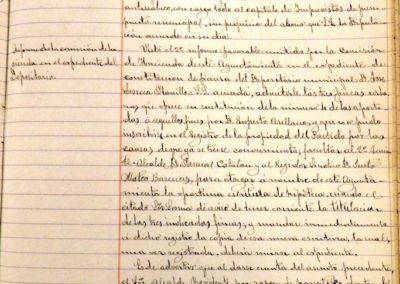 automático, con cargo todo al capítulo de Imprevistos de presu-
puesto municipal, sin perjuicio del abono que S.E. la Diputa-
ción acuerde en su día.
Informe de la comisión de ha-
cienda en el expediente del
Depositario.
Visto el informe favorable emitido por la Comisión
de Hacienda de este Ayuntamiento en el expediente de
constitución de fianza del Depositario municipal D. José
Se acuerda, admitirle las tres fincas urba-
nas que ofrece en sustitución de la número 4 de las aporta-
das a aquellos fines por D. Ruperto Arellano, y que no pudo
inscribirse en el Registro de la propiedad del Partido por las
causas de que ya se tiene conocimiento, facultar al
Alcalde D. Pascual Catalán y al Regidor Síndico D. Justo
Mateo Bárcena, para otorgar a nombre de este Ayunta-
miento la oportuna escritura de hipoteca, cuando el
citado de tener corriente la titulación
de las tres indicadas fincas, y mandar inmediatamente
a dicho registro la copia de esa nueva escritura, la cual,
una vez registrada, deberá unirse al expediente.
Es de advertir que al darse cuenta del asunto precedente,
el Sr. Alcalde Presidente